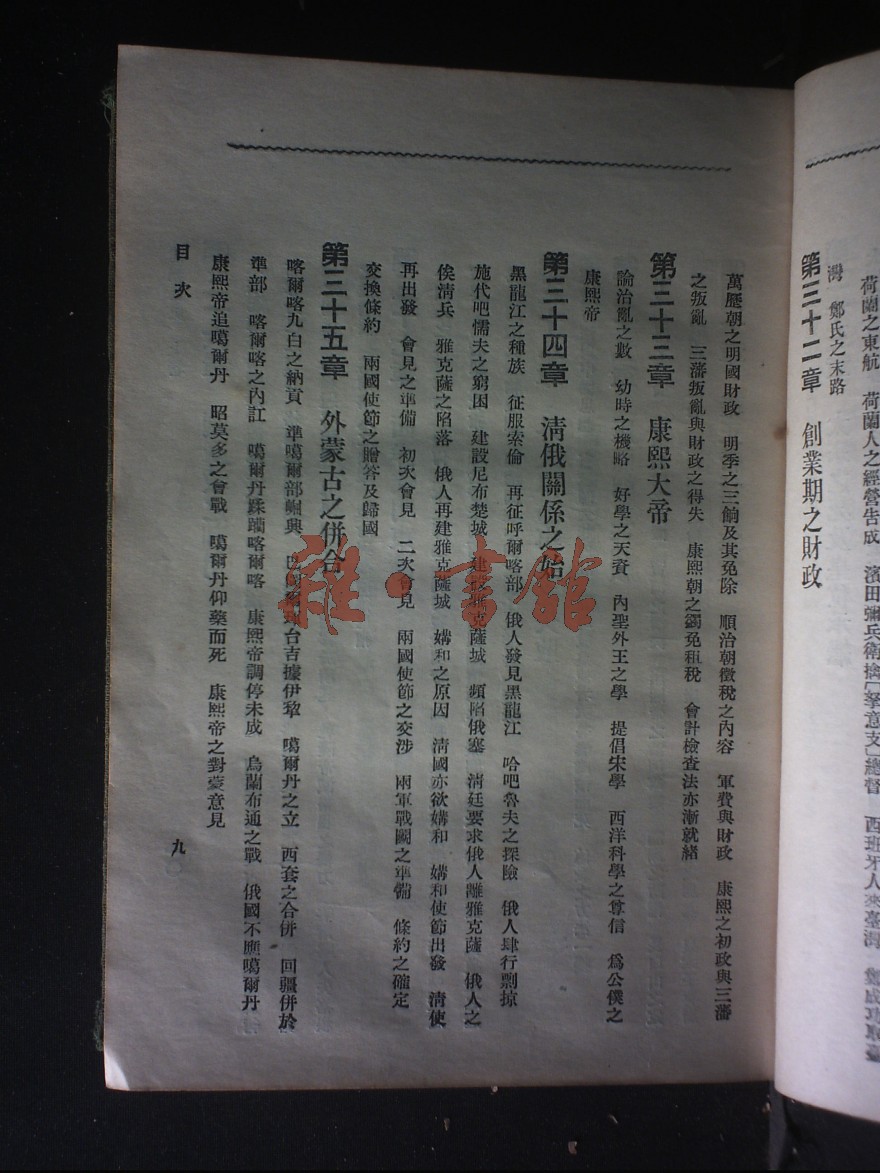 荷蘭之東航　荷蘭人之經營告成　濱田彌兵衛擒〔挐意支〕總督　西班牙人來臺灣
灣　鄭氏之末路
第三十二章　創業期之財政
萬曆朝之明國財政　明季之三餉及其免除　順治朝徵稅之內容　軍費與財政　康熙之初政與三藩
之叛亂　三藩叛亂與財政之得失　康熙朝之蠲免租稅　會計檢查法亦漸就緒
第三十三章　康熙大帝
論治亂之數　幼時之機略　好學之天資　內聖外王之學　提倡宋學　西洋科學之尊信　爲公僕之
康熙帝
第三十四章　淸俄關係之始
黑龍江之種族　征服索倫　再征呼爾喀部　俄人發見黑龍江　哈吧魯夫之探險　俄人肆行剽掠
施代吧懦夫之窮困　建設尼布楚城　建設雅克薩城　頻陷俄塞　淸廷要求俄人離雅克薩　俄人之
俟淸兵　雅克薩之陷落　俄人再建雅克薩城　媾和之原因　淸國亦欲媾和　媾和使節出發　淸使
再出發　會見之準備　初次會見　二次會見　兩國使節之交涉　兩軍戰鬭之準備　條約之確定
交換條約　兩國使節之贈答及歸國
第三十五章　外蒙古之併合
喀爾喀九白之納貢　準噶爾部崛興　台吉據伊犂　噶爾丹之立　西套之合併　回疆併於
準部　喀爾喀之內訌　噶爾丹蹂躪喀爾喀　康熙帝調停未成　烏蘭布通之戰　俄國不應噶爾丹
康熙帝追噶爾丹　昭莫多之會戰　噶爾丹仰藥而死　康熙帝之對蒙意見
目次
九
雜·書館